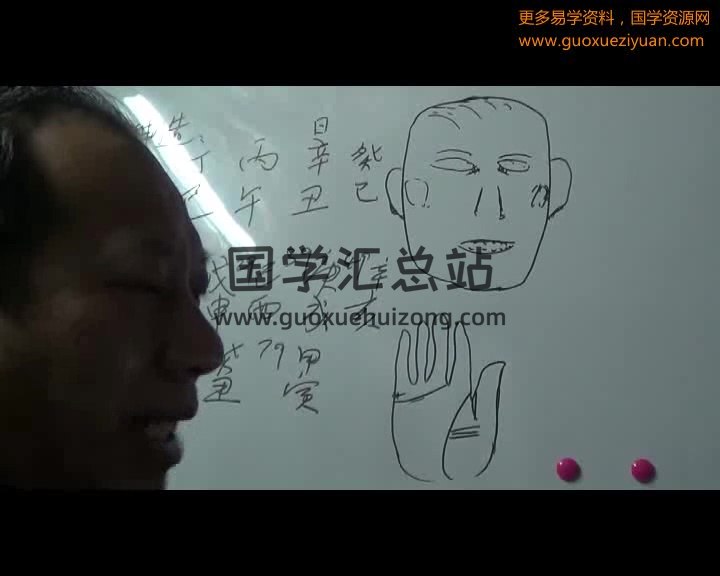 更多易学资料，国学资源网
www.guoxueziyuan.com
造：
日
丁 丙 辛 癸
巳 午 丑 巳
国学汇总站
www.guoxuehuizong.com
戊
申 酉 戌 亥
79 甲
丑 寅